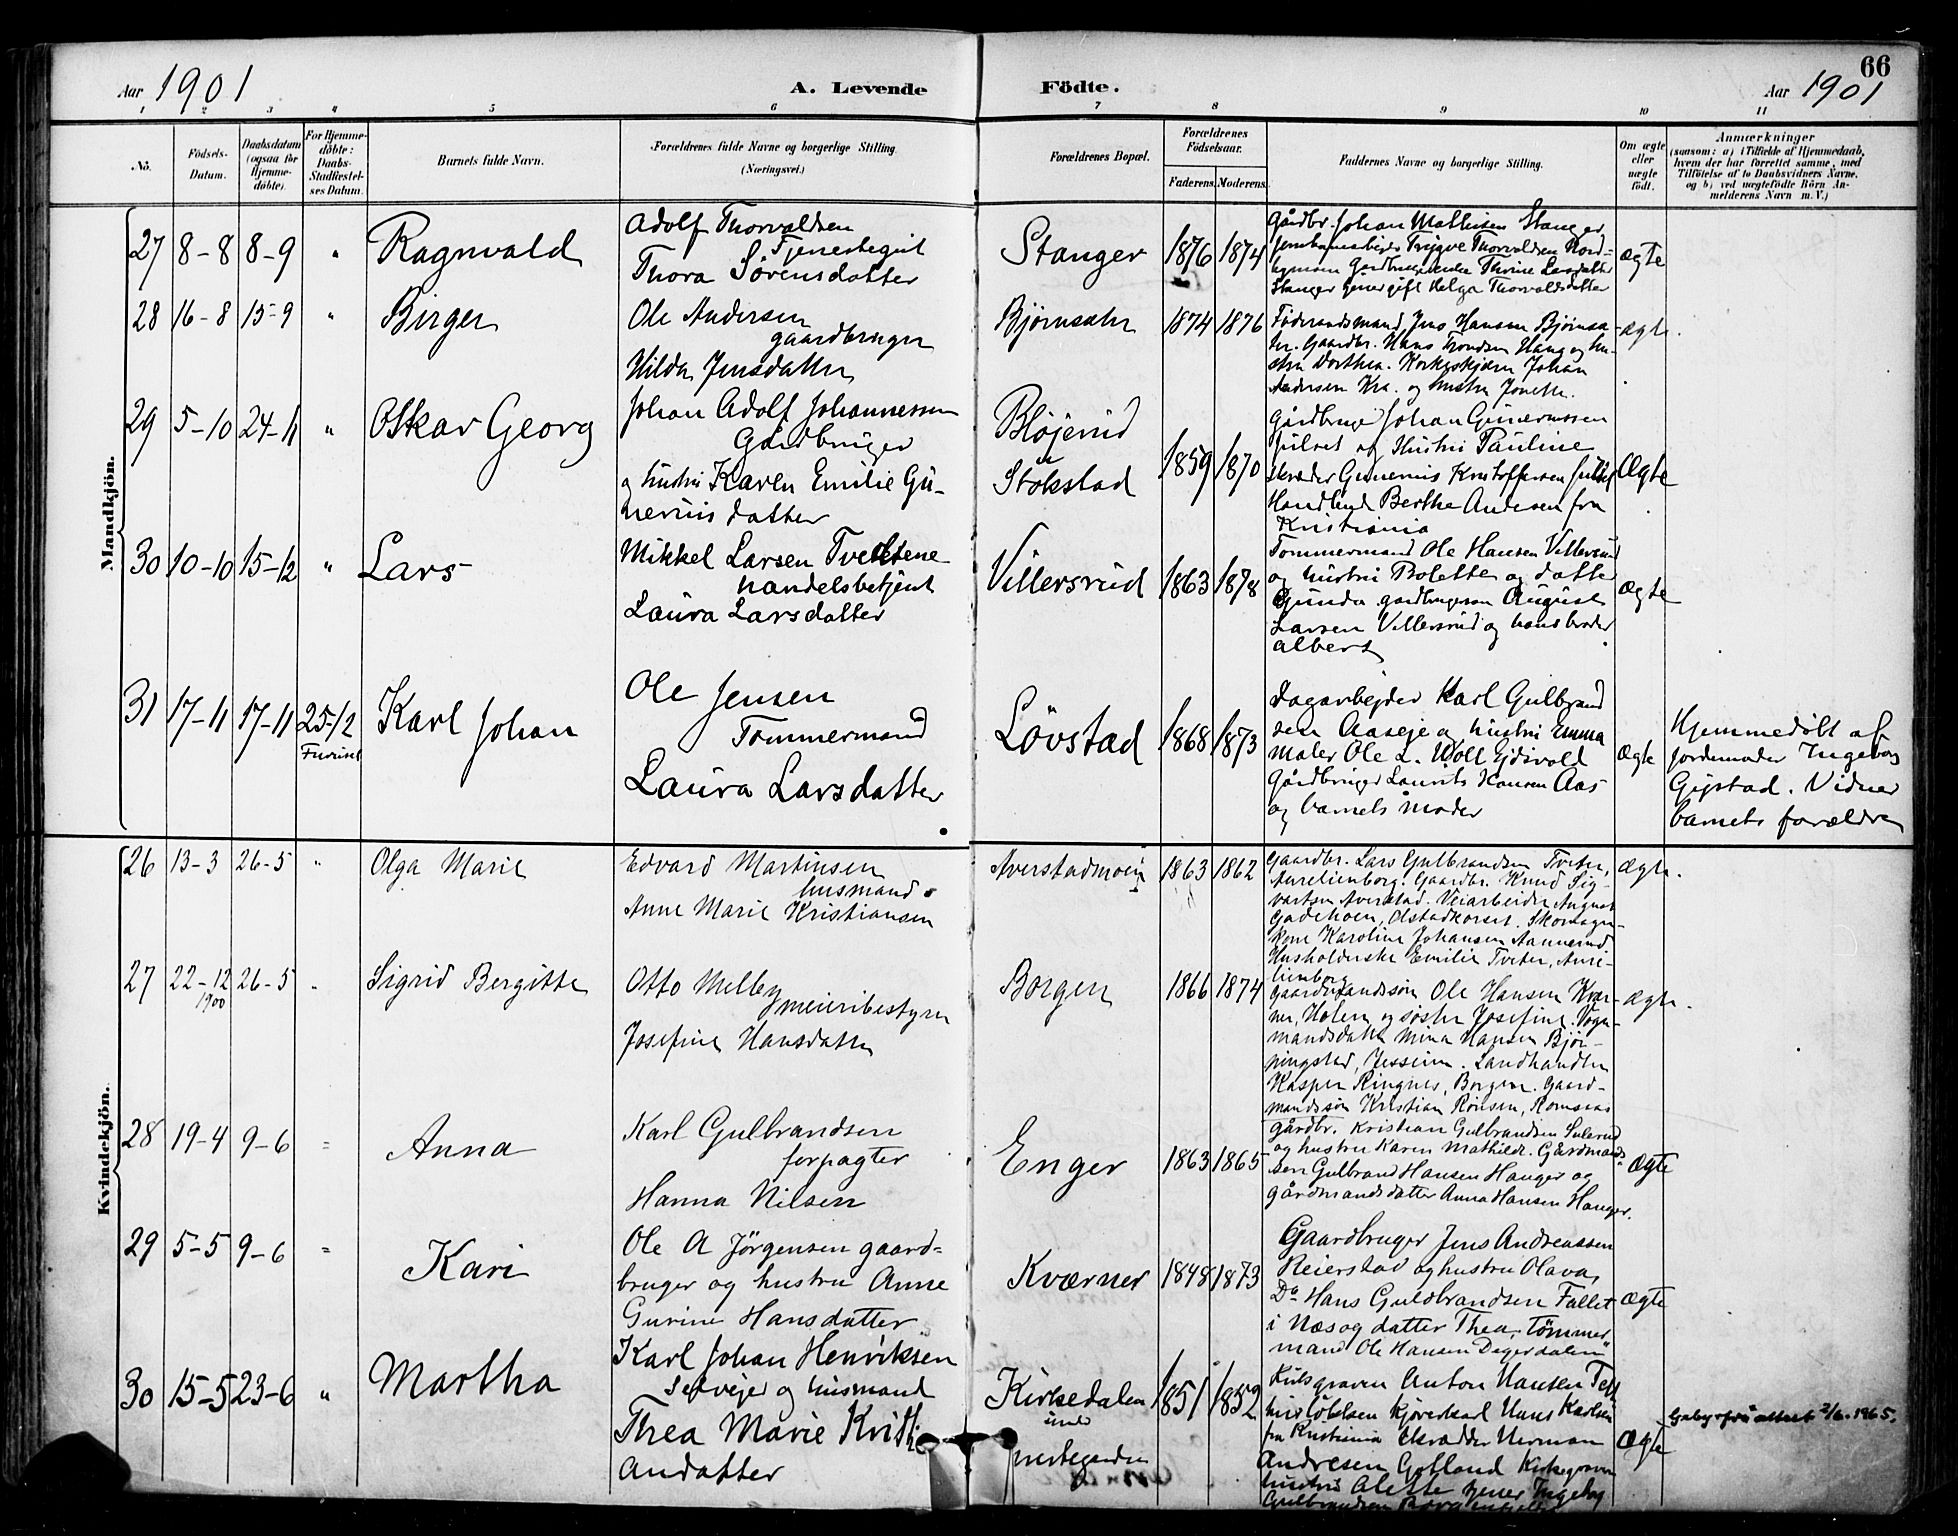 Aar 1901
A. Levende Födte.
66
Aar 1901
1 2 3 4 5 6 7 8 9 10 11
No.
Födsels-Datum.
Daabsdatum (ogsaa för Hjemme-döbte).
For Hjemme-döbte: Daabs-Stadfæstel-ses Datum.
Barnets fulde Navn.
Forældrenes fulde Navne og borgerlige Stilling (Næringsvei.)
Forældrenes Bopæl.
Forældrenes Födselsaar.
Faderens. Moderens.
Faddernes Navne og borgerlige Stilling.
Om ægte eller uægte födt.
Anmærkninger
(saasom: a) i Tilfælde af Hjemmedaab,
hvem der har forrettet samme, med
Tilföielse af to Daabsvidners Navne,
og b) ved uægtefödte Börn An-
melderens Navn m. V.)
Mandkjön.
27 8-8 8-9 " Ragnvald
Adolf Thorvaldsen
Tjenestegut
Thora Sörensdatter
Stanger 1876 1874
Gårdbr. Johan Mathisen Stanger,
Trygve Thorvaldsen Nord-
Thrine Larsdatter
Stanger Helga Thorvaldsdatter
ægte
28 16-8 15-9 " Birger
Ole Andersen
gaardbruger
Hilda Jensdatter
Björnsæter 1874 1876
Föderaadsmand Jens Hansen Björnsæ-
ter. Gaardbr. Hans Trondsen Haug og hu-
stru Dorthea. Korkeskjærer Johan
Andersen Kra. og hustru Jonette.
ægte.
29 5-10 24-11 " Oskar Georg
Johan Adolf Johannessen
Gårdbruger
og hustru Karen Emilie Gu-
neriusdatter
Blöjerud
Stokstad
1859 1870
Gårdbruger Johan Guneriussen
Julset og Hustru Pauline
Skræder Gunerius Kristoffersen Julset
Berthe Andersen fra
Kristiania
Ægte
30 10-10 15-12 " Lars
Mikkel Larsen Tvedtene
handelsbetjent
Laura Larsdatter
Villersrud 1863 1878
Tømmermand Ole Hansen Villersrud
og hustru Bolette og datter
Gunda gårdbrugersøn August
Larsen Villersrud og hans broder
Albert
ægte
31 17-11 17-11 25-12 Karl Johan
Ole Jensen
Tømmermand
Laura Larsdatter
Lövstad 1868 1873
Dagarbejder Karl Gulbrand
sen Aaseje og hustru Emma
Maler Ole L. Woll Ejdsvold
Gårdbruger Laurits Hansen Aas
og barnets moder
ægte
Hjemmedöbt af
jordemoder Ingeborg
Gjestad. Vidner
barnets forældre
Kvindekjön.
26 13-3 26-5 " Olga Marie
Edvard Martinsen
husmand
Anne Marie Kristiansen
Averstadmoen 1863 1862
Gaardbr. Lars Gulbrandsen Tveter,
Aurelienborg. Gaardbr. Knud Sig-
vartsen Averstad. Veiarbeider August
Skomager-
kone Karoline Johansen
Husholderske Emilie Tveter, Aure-
lienborg
ægte.
27 22-12 26-5 " Sigrid Bergitte
1900
Otto Melby
meieribestyrer
Josefine Hansdatter
Borgen 1866 1874
Gaardmandssön Ole Hansen Kvær-
ner, Holen og söster Josefine. Vogn-
mandsdatter Mina Hansen Björ-
ningstad, Jessheim. Landhandler
Kasper Ringnes, Borgen. Gaard-
mandssön Kristian Rönsen, Romsaas
ægte.
28 19-4 9-6 = Anna
Karl Gulbrandsen
forpagter
Hanna Nilsen
Enger 1863 1865
gårdbr. Kristian Gulbrandsen Sulerud
og hustru Karen Mathilde. Gårdmands-
sön Gulbrand Hansen Hanger og
gårdmandsdatter Anna Hansen Hanger.
ægte
29 5-5 9-6 = Kari
Ole A Jörgensen gaard=
bruger og hustru Anne
Gurine Hansdatter
Kværner 1848 1873
Gaardbruger Jens Andreassen
Reierstad og hustru Olava,
Do Hans Guldbrandsen Fallet
i Næs og datter Thea, Tömmer
mand Ole Hansen Degerdalen
ægte
30 15-5 23-6 " Martha
Karl Johan Henriksen
Selvejer og husmand
Thea Marie Kristi-
andatter
Kirkedalen
under
Præstegården
1851 1852
Anton Hansen
Hans Karlsen
fra Kristiania Skrædder Herman
Andresen Gotland Kirkegraver
hustru Alette Ingeborg
Gulbrandsen
Ægte
attest 2/6. 1965.